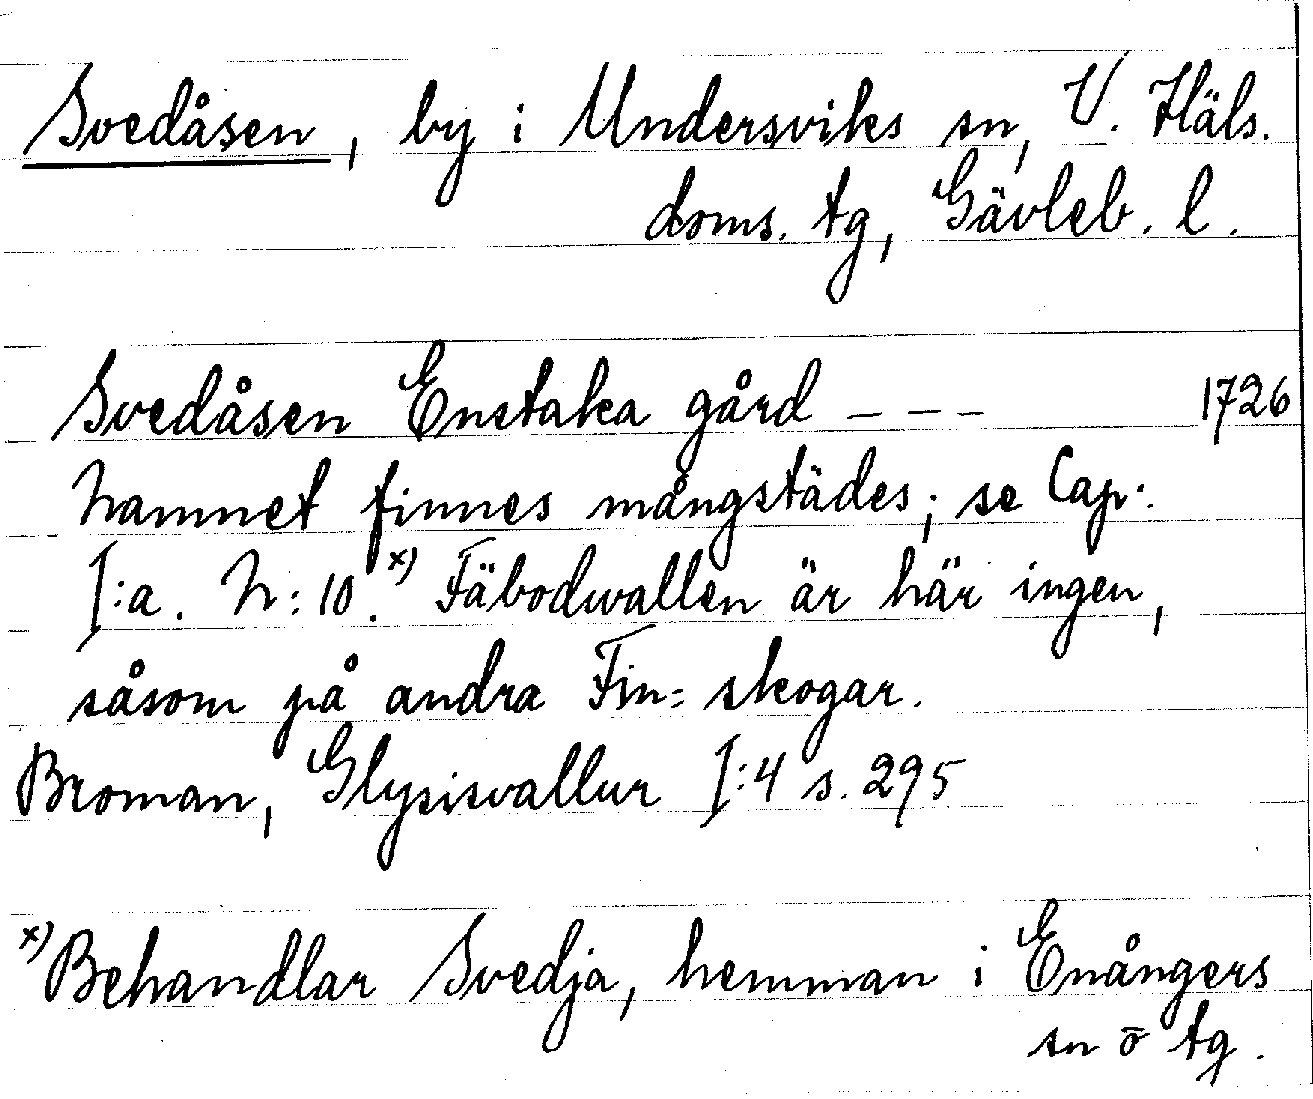 Svedåsen, by i Undersviks sn, V. Häls.
doms. tg, Gävleb. l.
Svedåsen Enstaka gård - - - 1726
Namnet finnes mångstädes; se Cap:
I:a. N: 10.x) Fäbodwallen är här ingen,
såsom på andra Fin= skogar.
Broman, Glysisvallur I:4 s. 295
x) Behandlar Svedja, hemman i Enångers
sn o tg.